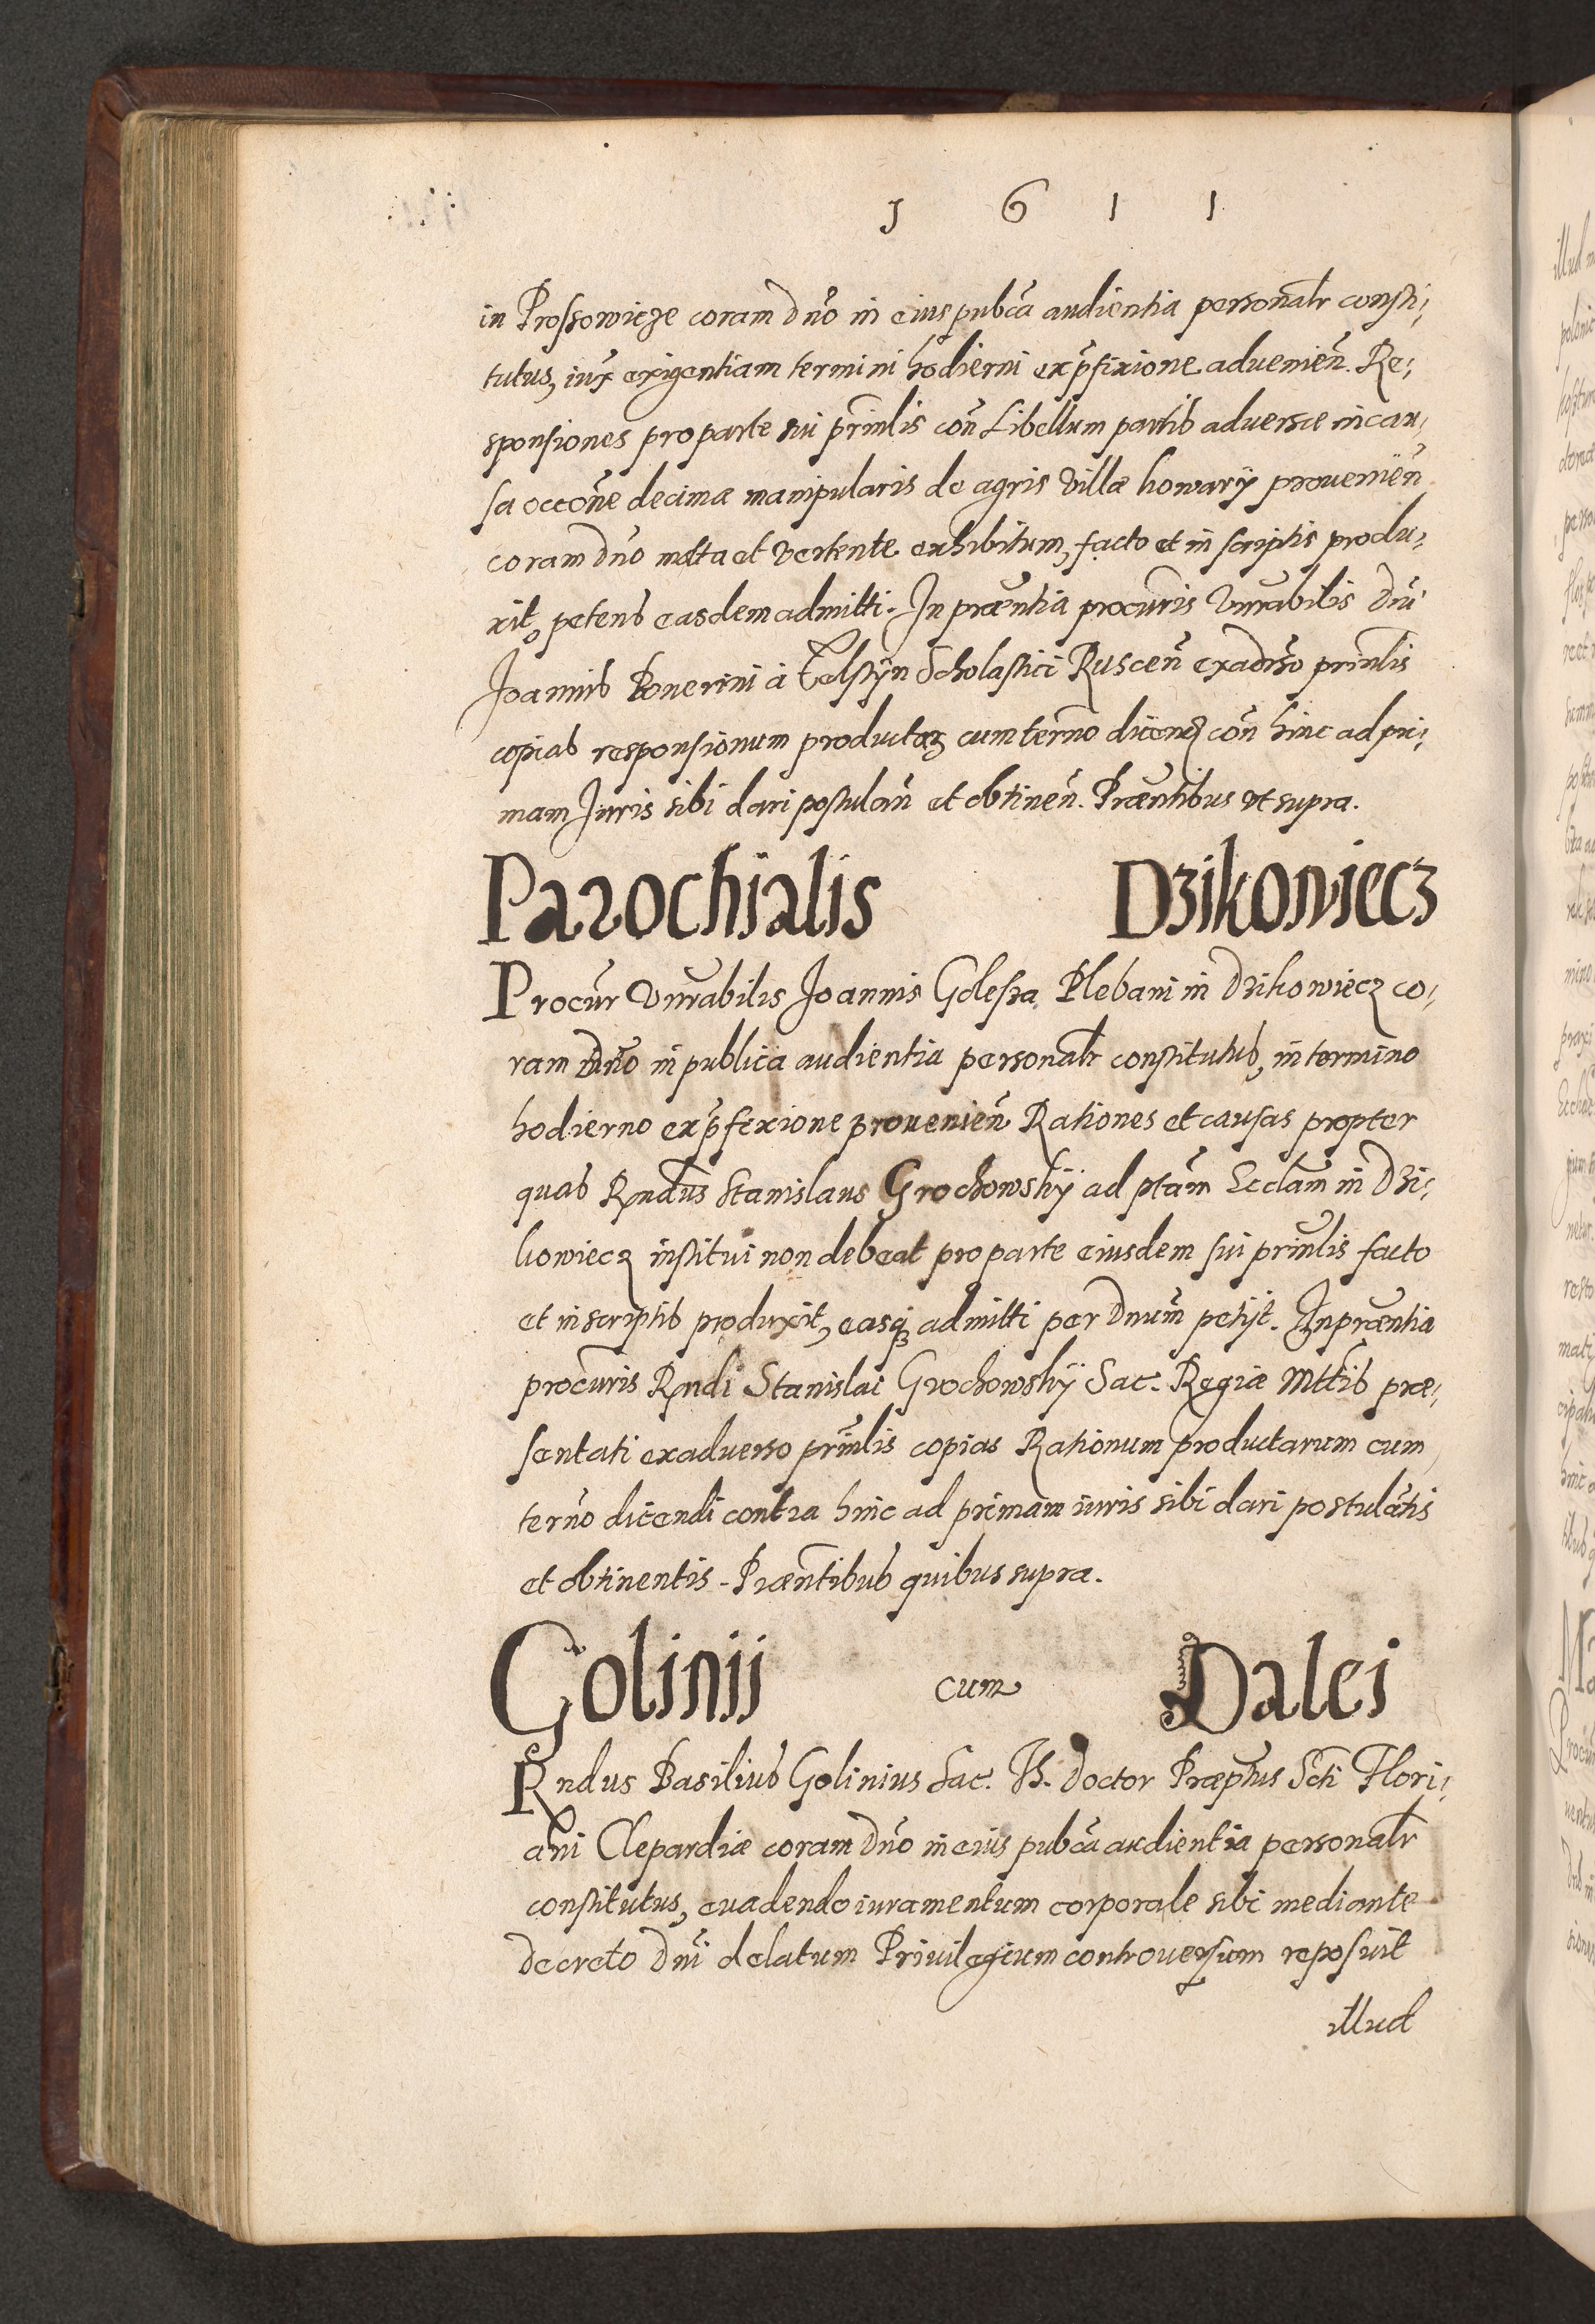 1 6 1 1
in Prossowicze coram dno in eius pubca audientia personalr consti¬
tutus, iux exigentiam termini hodierni expfixione aduenien. Re¬
sponsiones pro parte sui prinlis con Libellum partis aduersæ in cau¬
sa occone decimæ manipularis de agris Villæ kowary prouenien
coram dno mota et vertente exhibitum, facto et in scriptis produ¬
xit, petens easdem admitti. In præntia procuris Vnrabilis dni
Joannis Bonerini à Felstyn Scholastici Ruscen ex adrso prinlis
copias responsionum productaz cum termo dicendi con hinc ad pri¬
mam Juris sibi dari postulan et obtinen. Præntibus vt supra.
Parochialis Dzikowiecz
Procur Vnrabilis Joannis Golesza Plebani in Dzikowiecz co¬
ram Dno in publica audientia personalr constitutus, in termino
hodierno expfixione prouenien Rationes et causas propter
quas Rndus Stanislaus Grochowsky ad ptam Ecclam in Dzi¬
kowiecz institui non debeat pro parte eiusdem sui prinlis facto
et in scriptis produxit, easq admitti per Dnum petijt. In præntia
procuris Rndi Stanislai Grochowsky Sac. Regiæ Mttis præ¬
sentati ex aduerso prinlis copias Rationum productarum cum
termo dicendi contra hinc ad primam iuris sibi dari postulatis
et obtinentis. Præntibus quibus supra.
Golinij cum Dalei
Rndus Basilius Golinius Sac. Th. Doctor Præptus Scti Flori¬
ani Clepardiæ coram dno in eius pubca audientia personalr
constitutus, euadendo iuramentum corporale sibi mediante
decreto Dni delatum Priuilegium controuersum reposuit
illud